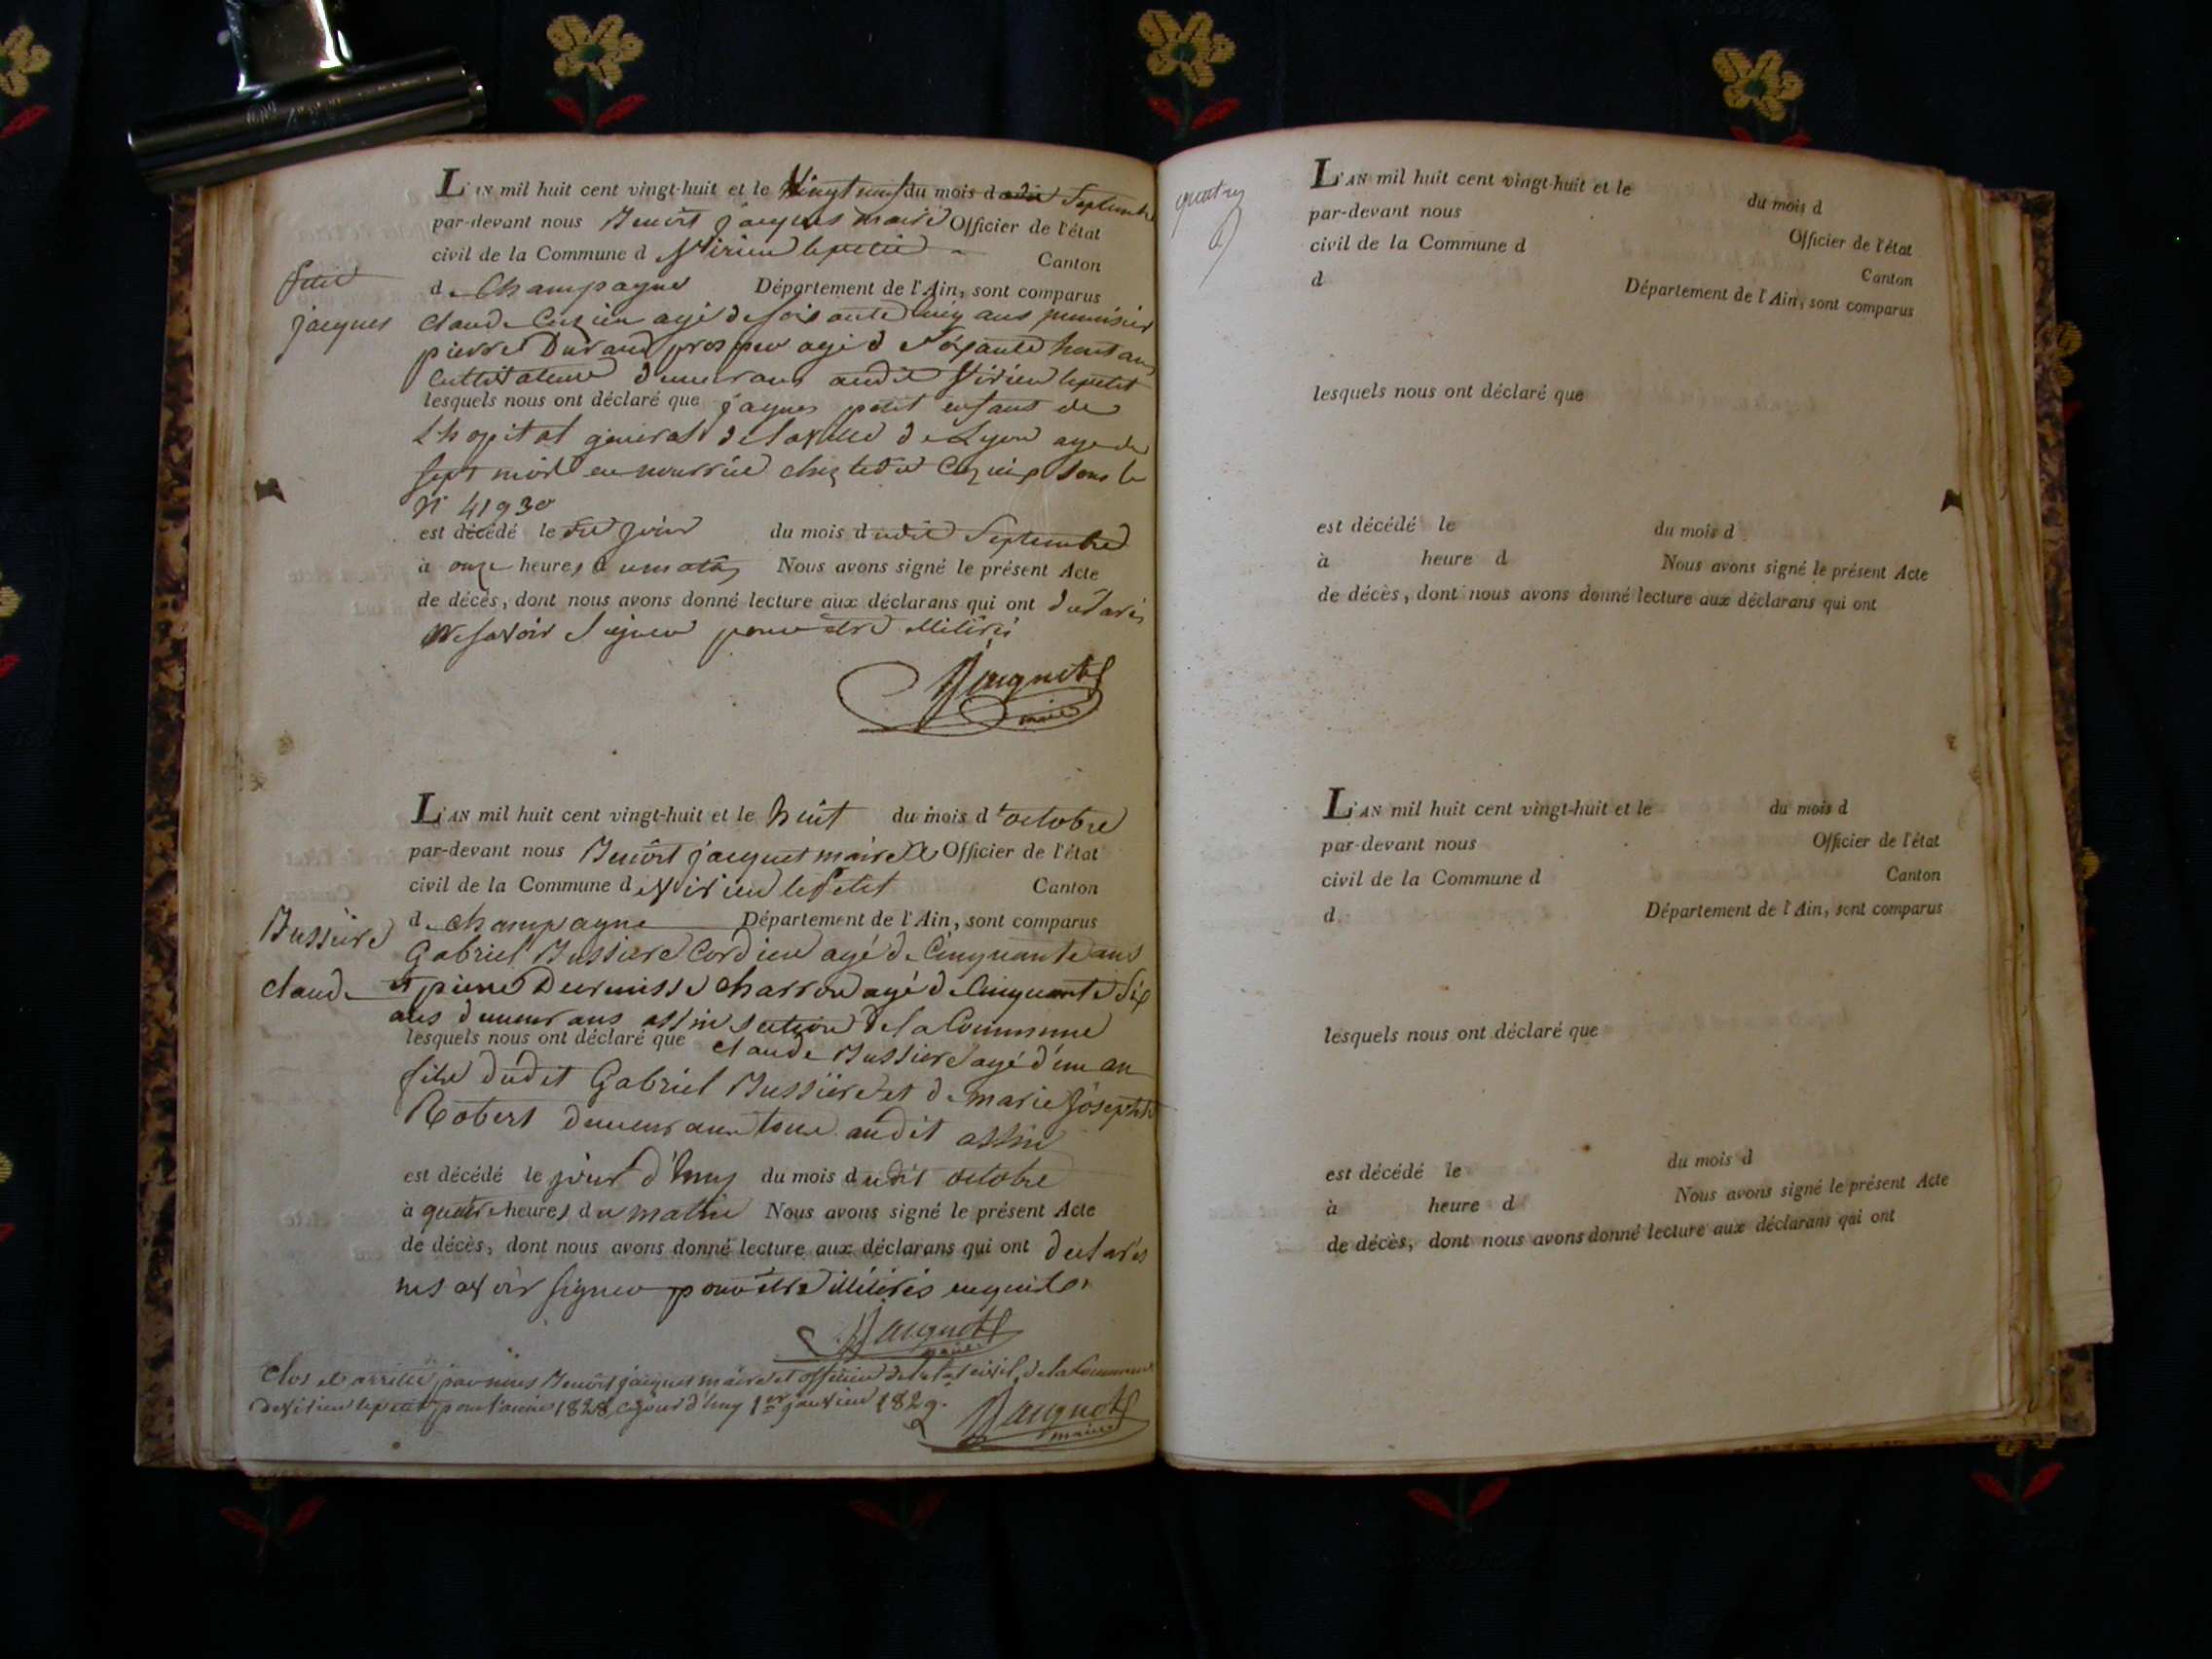 L'AN mil huit cent vingt-huit et le vingt neuf du mois d Septembre
par-devant nous Benoit jacques maire Officier de l'état
civil de la Commune d Virieu lepetit Canton
d Champagne Département de l'Ain, sont comparus
petit
jacques
claude agé de soisante cinq ans
pierre Durand prosper agé de soixante huit ans
Cultivateurs demeurans audit Virieu lepetit
lesquels nous ont déclaré que jaques petit enfant de
L'hopital general de la ville de Lyon agé de
sept mois en nourrice chez ledit sous le
N° 41930
est décédé le dit jour du mois dudit Septembre
à onze heures du matin Nous avons signé le présent Acte
de décès, dont nous avons donné lecture aux déclarans qui ont déclarés
ne savoir signer pour etre illitirés
Jacquet
maire
L'AN mil huit cent vingt-huit et le huit du mois d'octobre
par-devant nous Benoit jacquet maire Officier de l'état
civil de la Commune de Virieu le Petit Canton
de champagne Département de l'Ain, sont comparus
Bussiere
claude
Gabriel Bussiere agé de Cinquante ans
et pierre charron agé de Cinquante six
ans demeurans assin section de la Commune
lesquels nous ont déclaré que claude Bussiere agé d'un an
fils dudit Gabriel Bussiere et de marie Josephte
Robert demeurans tous audit assin
est décédé le jour d'huy du mois dudit octobre
à quatre heures du matin Nous avons signé le présent Acte
de décès, dont nous avons donné lecture aux déclarans qui ont declarés
ne savoir signer pour etre illitirés enquis
Jacquet
maire
Clos et arrêté par nous Benoit jacquet maire et officier de l'etat civil de la Commune
de Virieu lepetit pour l'année 1828, cejourd'huy 1er janvier 1829.
Jacquet
maire
L'AN mil huit cent vingt-huit et le du mois d
par-devant nous Officier de l'état
civil de la Commune d Canton
d Département de l'Ain, sont comparus
lesquels nous ont déclaré que
est décédé le du mois d
à heure d Nous avons signé le présent Acte
de décès, dont nous avons donné lecture aux déclarans qui ont
L'AN mil huit cent vingt-huit et le du mois d
par-devant nous Officier de l'état
civil de la Commune d Canton
d Département de l'Ain, sont comparus
lesquels nous ont déclaré que
est décédé le du mois d
à heure d Nous avons signé le présent Acte
de décès, dont nous avons donné lecture aux déclarans qui ont